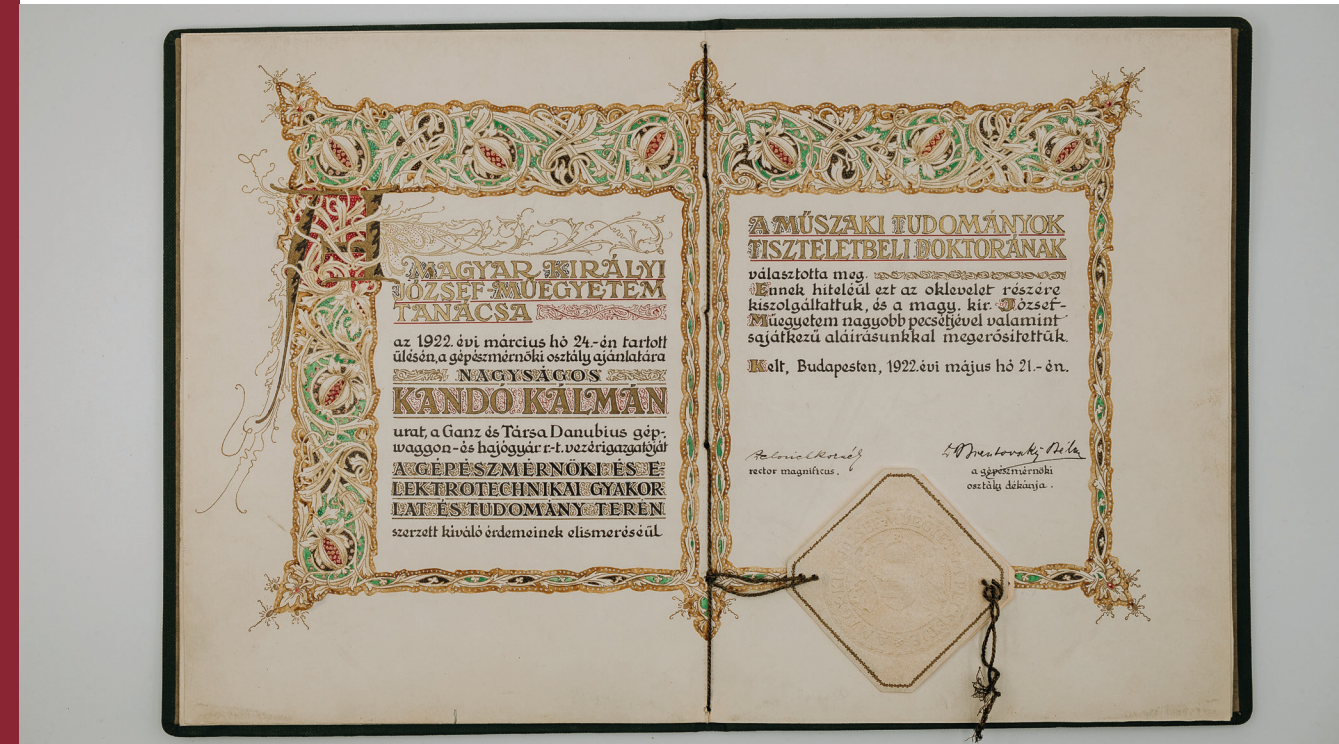 A MAGYAR KIRÁLYI
JÓZSEF-MŰEGYETEM
TANÁCSA
az 1922. évi március hó 24.-én tartott
ülésén, a gépészmérnöki osztály ajánlatára
NAGYSÁGOS
KANDÓ KÁLMÁN
urat, a Ganz és Társa Danubius gép-,
waggon- és hajógyár r-t. vezérigazgatóját
A GÉPÉSZMÉRNÖKI ÉS E
LEKTROTECHNIKAI GYAKOR
LAT ÉS TUDOMÁNY TERÉN
szerzett kiváló érdemeinek elismeréséül
A MŰSZAKI TUDOMÁNYOK
TISZTELETBELI DOKTORÁNAK
választotta meg.
Ennek hiteléül ezt az oklevelet részére
kiszolgáltattuk, és a magy. kir. József-
Műegyetem nagyobb pecsétjével valamint
sajátkezű aláírásunkkal megerősítettük.
Kelt, Budapesten, 1922. évi május hó 21.-én.
rector magnificus.
a gépészmérnöki
osztály dékánja.